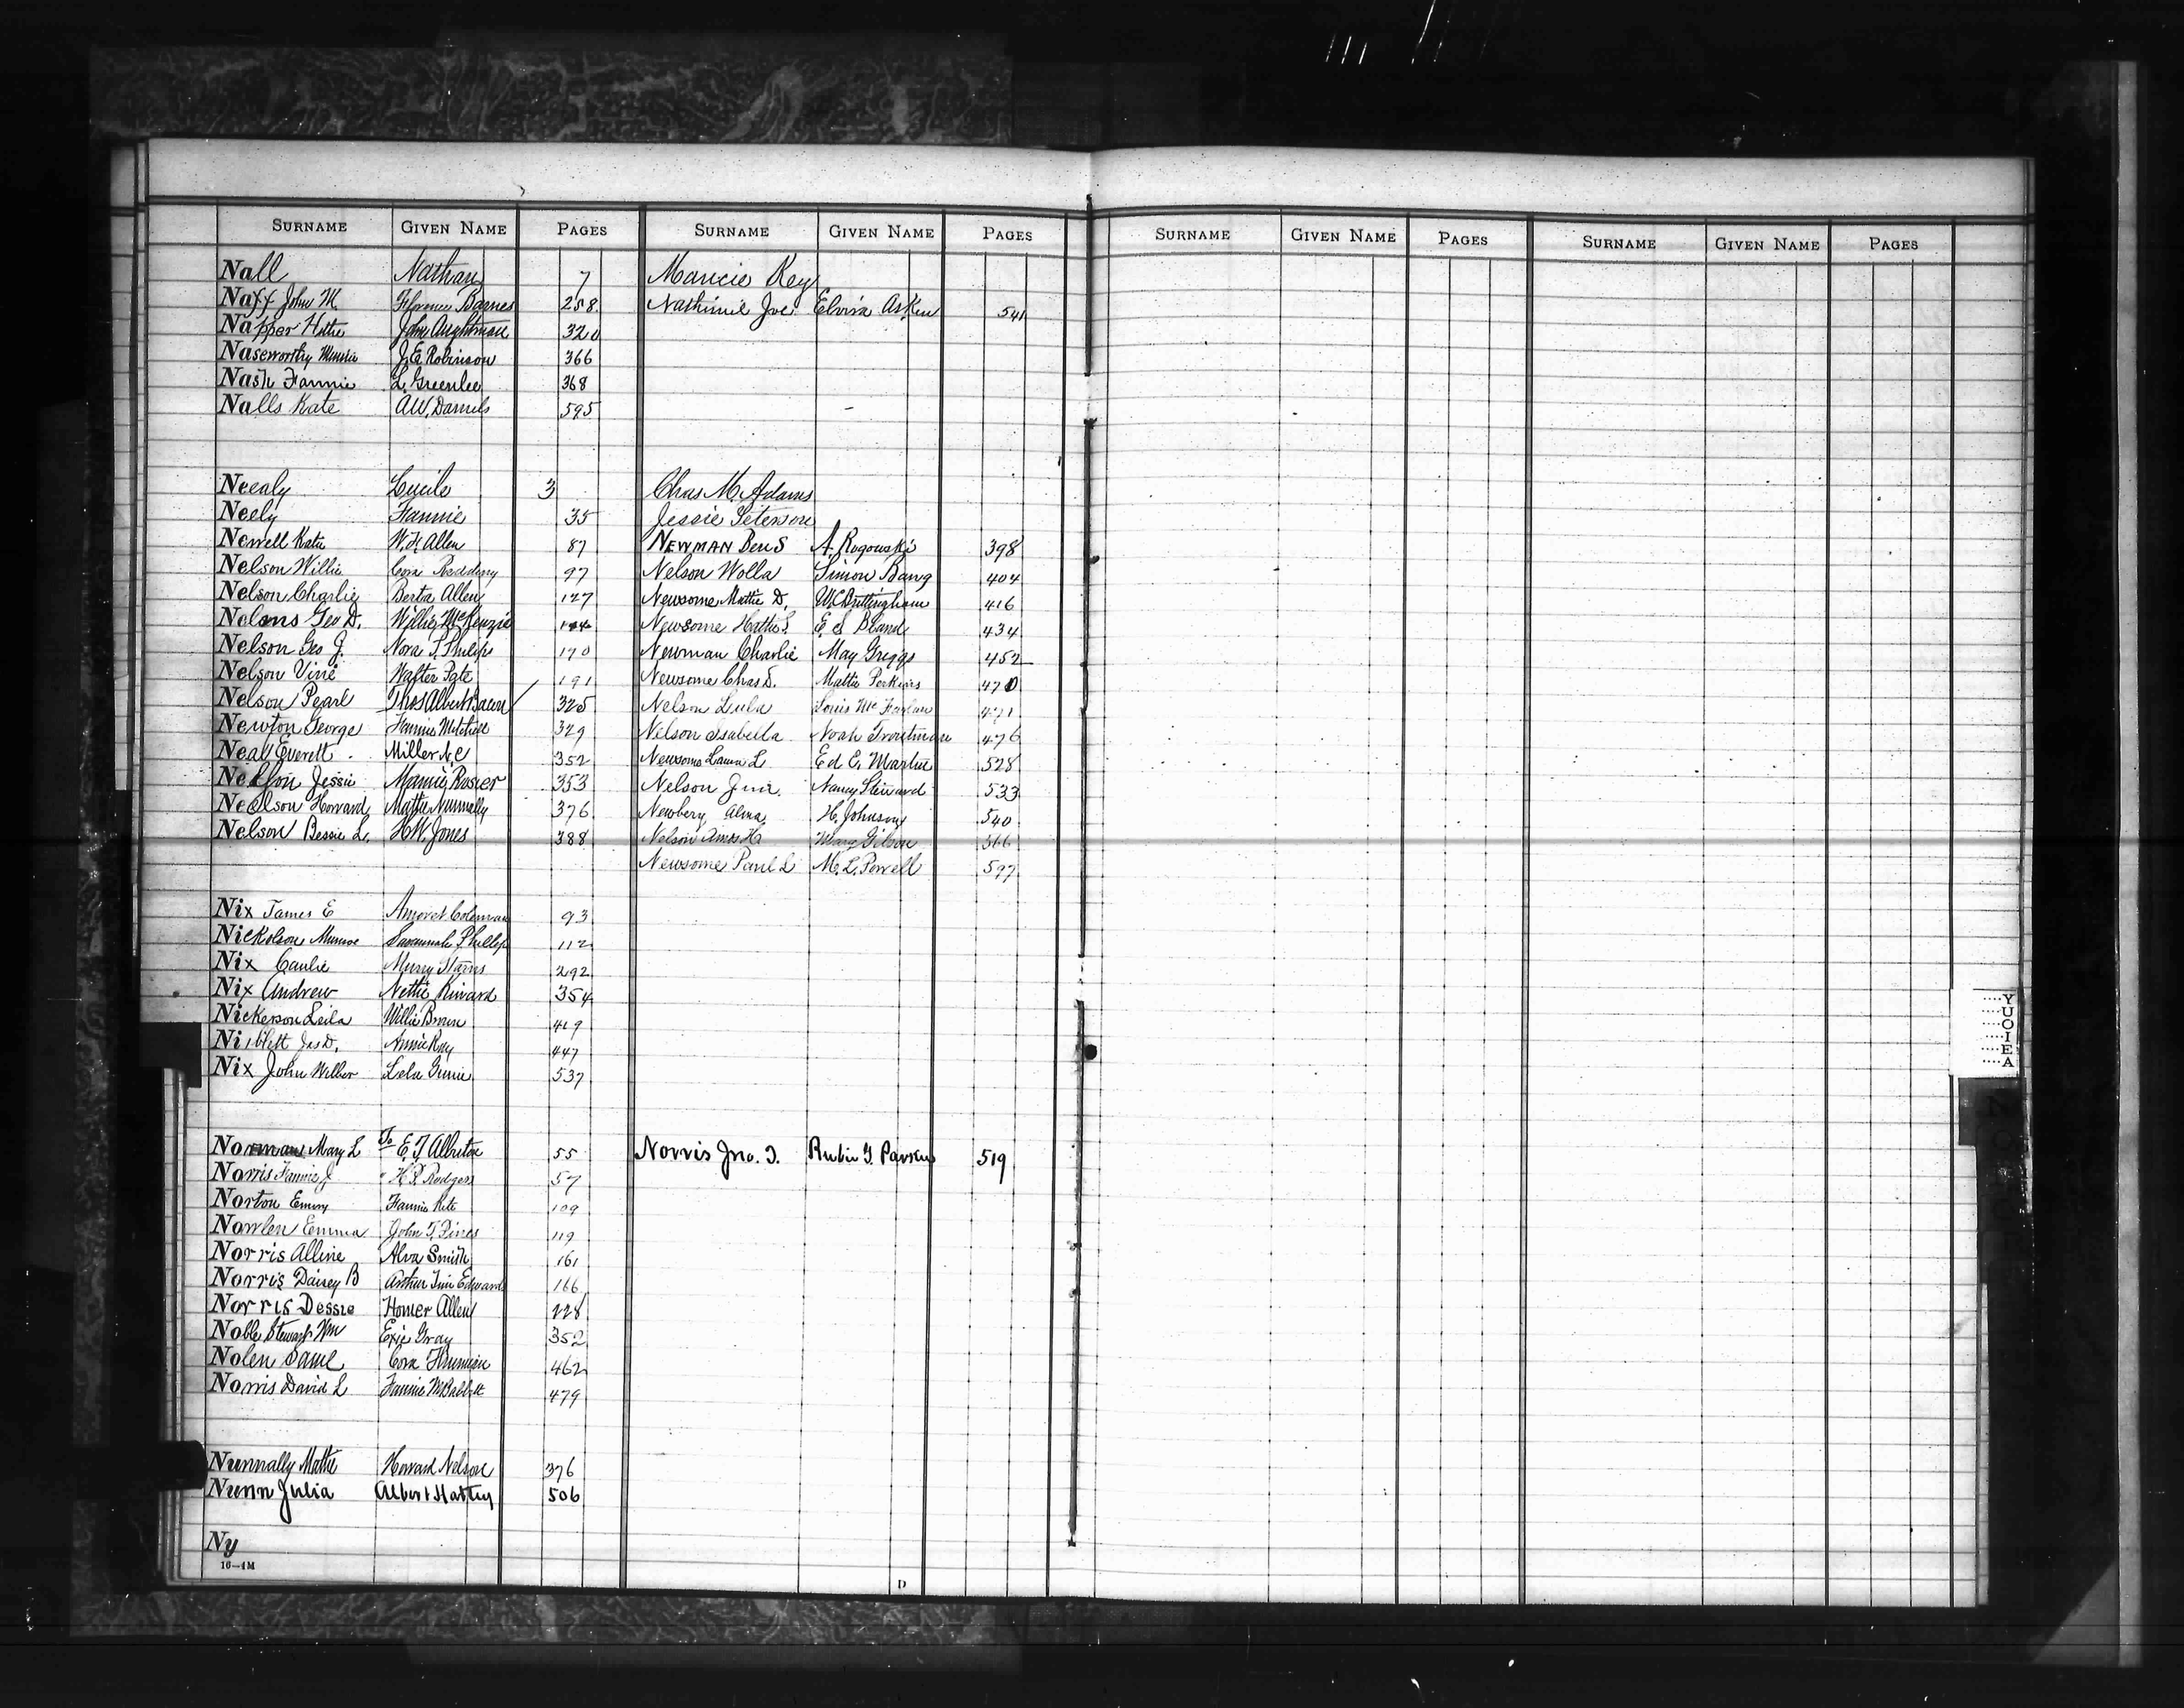 SURNAME GIVEN NAME PAGES SURNAME GIVEN NAME PAGES SURNAME GIVEN NAME PAGES SURNAME GIVEN NAME PAGES
Nall Nathan 7 Maricie Key
Naff John M Florence Barnes 258 Nathinie Joe Elvira Askew 541
Napper Hattie John Aughtman 320
Naseworthy Minnie J. E. Robinson 366
Nash Fannie L. Greenlee 368
Nalls Kate A W, Daniels 595
Neealy Lucile 3 Chas M. Adams
Neely Fannie 35 Jessie Peterson
Newell Katie W. H. Allen 87 NEWMAN Ben S A. Rogowski 398
Nelson Willie Cora Redding 97 Nelson Wolla Simon Bang 404
Nelson Charlie Berta Allen 127 Newsome Mattie D. W C Brittingham 416
Nelons Geo D. Willie McKenzie 144 Newsome Hattie S. E. S Bland 434
Nelson Geo J. Nora T. Philips 170 Newman Charlie May Griggs 452
Nelson Vine Walter Pate 191 Newsome Chas S. Mattie Perkins 470
Nelson Pearl Thos Albert Bacon 325 Nelson Lula Louis McFarlan 471
Newton George Fannie Mitchell 329 Nelson Isabella Noah Troutman 476
Neal Everett Miller N, C 352 Newsome Laura L Ed E. Martin 528
Nelson Jessie Mamie Rosier 353 Nelson Jim Nancy Steward 533
Neelson Howard Mattie Nunnally 376 Newbery Alma H. Johnson 540
Nelson Bessie L. H W. Jones 388 Nelson Amos H Mary Gibson 566
Newsome Paul L M. L. Powell 597
Nix James E Amoret Coleman 93
Nickolson Munroe Savannah Phillips 112
Nix Caulie Murry Starns 292
Nix Andrew Nettie Kinard 354
Nickerson Leila Willie Brown 419
Niblett Jas D. Annie Ray 447
Nix John Wilber Lela Gunie 537
Norman Mary L To E. T. Albriton 55 Norris Jno. T. Rubie T. Parker 519
Norris Fannie J " H. P. Rodgers 57
Norton Emory Fannie Kite 109
Nowlen Emma John T. Fines 119
Norris Alline Alva Smith 161
Norris Daisey B Arthur Jim Edwards 166
Norris Dessie Homer Allen 228
Noble Stewart Wm Exie Gray 352
Nolen Saml Cora 462
Norris David L Fannie M Babbitt 479
Nunnally Mattie Howard Nelson 376
Nunn Julia Albert Hattey 506
Ny
16—4M
D
Y
U
O
I
E
A